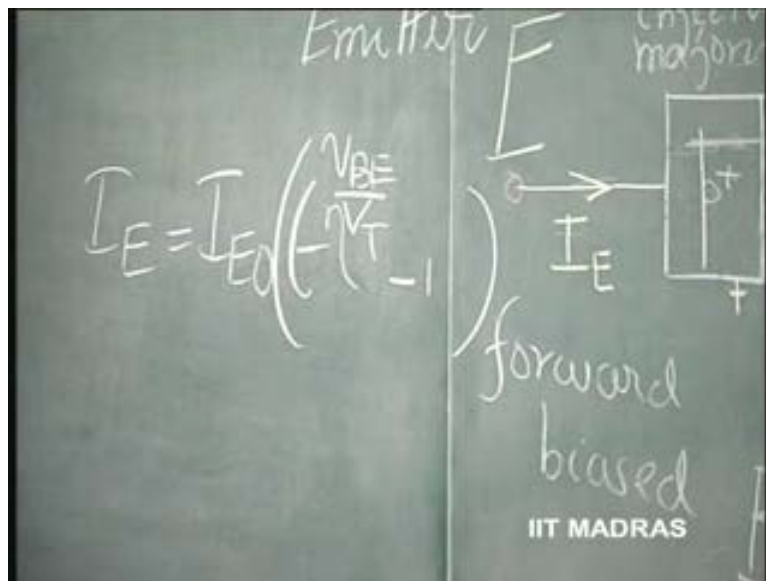 Emitter E
majori
I_E = I_E0 (e^(V_BE/ηV_T) -1)
I_E
p+
+
forward
biased
IIT MADRAS